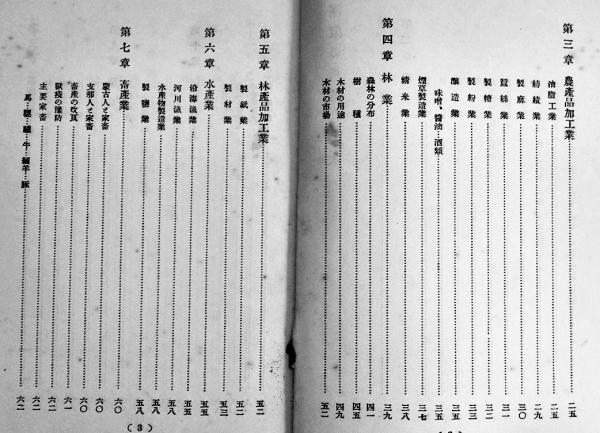 第三章 農産品加工業 二五
油脂工業 二五
紡績業 二九
製麻業 三〇
製糖業 三二
製粉業 三三
醸造業 三五
味噌、醤油…酒類 三五
煙草製造業 三七
精米業 三八
第四章 林業 三九
森林の分布 四一
樹種 四五
木材の用途 四九
木材の市場 五一
第五章 林産品加工業 五二
製紙業 五二
製材業 五三
第六章 水産業 五五
沿海漁業 五五
河川漁業 五五
水産物製造業 五八
製鹽業 五八
第七章 畜産業 六〇
蒙古人と家畜 六〇
支那人と家畜 六〇
畜産の改良 六一
獣疫の豫防 六二
主要家畜 六二
馬…騾…驢…牛…緬羊…豚 六二
(3)